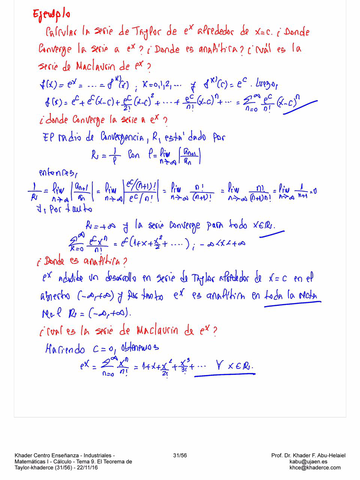 Ejemplo
Calcular la serie de Taylor de e^x alrededor de x=c. ¿Donde
Converge la serie a e^x? ¿Donde es analítica? ¿Cuál es la
serie de Maclaurin de e^x?
f(x) = e^x = ... = f^(n)(x), n=0,1,2,... y f^(n)(c) = e^c. Luego,
f(x) = e^c + e^c(x-c) + e^c/2! (x-c)^2 + ... + e^c/n! (x-c)^n + ... = Σ_{n=0}^∞ e^c/n! (x-c)^n
¿donde converge la serie a e^x?
El radio de convergencia, R, está dado por
R = 1/ρ con ρ = lim_{n→∞} |a_{n+1}/a_n|
entonces,
1/R = lim_{n→∞} |a_{n+1}/a_n| = lim_{n→∞} |e^c/(n+1)! / e^c/n!| = lim_{n→∞} n!/(n+1)! = lim_{n→∞} n!/(n+1)n! = lim_{n→∞} 1/n+1 = 0
y, por tanto
R = +∞ y la serie converge para todo x∈R.
= e^c(1+x+x^2/2+...); -∞<x<+∞
¿Donde es analítica?
e^x admite un desarrollo en serie de Taylor alrededor de x=c en el
abierto (-∞,+∞) y por tanto e^x es analítica en toda la recta
real R = (-∞,+∞).
¿cuál es la serie de Maclaurin de e^x?
Haciendo c=0, obtenemos
e^x = Σ_{n=0}^∞ x^n/n! = 1+x+x^2/2!+x^3/3!+... ∀ x∈R.
Khader Centro Enseñanza - Industriales - Matemáticas I - Cálculo - Tema 9. El Teorema de Taylor-khaderce (31/56) - 22/11/16
31/56
Prof. Dr. Khader F. Abu-Helaiel
kabu@ujaen.es
khce@khaderce.com